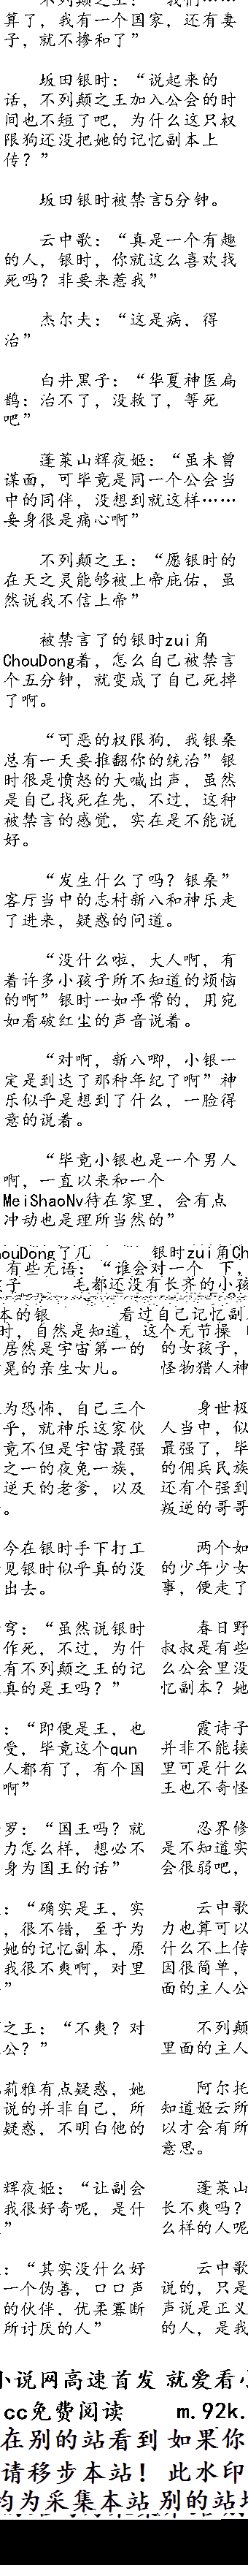 不列颠之王：“我们……
算了，我有一个国家，还有妻
子，就不掺和了”
坂田银时：“说起来的
话，不列颠之王加入公会的时
间也不短了吧，为什么这只权
限狗还没把她的记忆副本上
传？”
坂田银时被禁言5分钟。
云中歌：“真是一个有趣
的人，银时，你就这么喜欢找
死吗？非要来惹我”
杰尔夫：“这是病，得
治”
白井黑子：“华夏神医扁
鹊：治不了，没救了，等死
吧”
蓬莱山辉夜姬：“虽未曾
谋面，可毕竟是同一个公会当
中的同伴，没想到就这样……
妾身很是痛心啊”
不列颠之王：“愿银时的
在天之灵能够被上帝庇佑，虽
然说我不信上帝”
被禁言了的银时zui角
ChouDong着，怎么自己被禁言
个五分钟，就变成了自己死掉
了啊。
“可恶的权限狗，我银桑
总有一天要推翻你的统治”银
时很是愤怒的大喊出声，虽然
是自己找死在先，不过，这种
被禁言的感觉，实在是不能说
好。
“发生什么了吗？银桑”
客厅当中的志村新八和神乐走
了进来，疑惑的问道。
“没什么啦，大人啊，有
着许多小孩子所不知道的烦恼
的啊”银时一如平常的，用宛
如看破红尘的声音说着。
“对啊，新八唧，小银一
定是到达了那种年纪了啊”神
乐似乎是想到了什么，一脸得
意的说着。
“毕竟小银也是一个男人
啊，一直以来和一个
MeiShaoNv待在家里，会有点
冲动也是理所当然的”
ouDong了几 银时zui角Ch
有些无语：“谁会对一个 下，
孑 毛都还没有长齐的小孩
本的银 看过自己记忆副
时，自然是知道，这个无节操
居然是宇宙第一的 的女孩子，
晃的亲生女儿。 怪物猎人神
为恐怖，自己三个 身世极
乎，就神乐这家伙 人当中，似
竟不但是宇宙最强 最强了，毕
之一的夜兔一族， 的佣兵民族
逆天的老爹，以及 还有个强到
。 叛逆的哥哥
今在银时手下打工 两个如
见银时似乎真的没 的少年少女
出去。 事，便走了
穹：“虽然说银时 春日野
作死，不过，为什 叔叔是有些
有不列颠之王的记 么公会里没
真的是王吗？” 忆副本？她
：“即便是王，也 霞诗子
受，毕竟这个qun 并非不能接
人都有了，有个国 里可是什么
啊” 王也不奇怪
罗：“国王吗？就 忍界修
力怎么样，想必不 是不知道实
身为国王的话” 会很弱吧，
：“确实是王，实 云中歌
，很不错，至于为 力也算可以
她的记忆副本，原 什么不上传
我很不爽啊，对里 因很简单，
” 面的主人公
之王：“不爽？对 不列颠
公？” 里面的主人
莉雅有点疑惑，她 阿尔托
说的并非自己，所 知道姬云所
疑惑，不明白他的 以才会有所
意思。
辉夜姬：“让副会 蓬莱山
我很好奇呢，是什 长不爽吗？
” 么样的人呢
：“其实没什么好 云中歌
一个伪善，口口声 说的，只是
的伙伴，优柔寡断 声说是正义
所讨厌的人” 的人，是我
小说网高速首发 就爱看
cc免费阅读 m.92k.
在别的站看到 如果你
请移步本站！ 此水印
均为采集本站 别的站